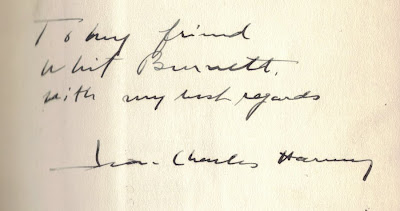 To my friend
Whit Burnett,
with my best regards
Jean-Charles Harvey